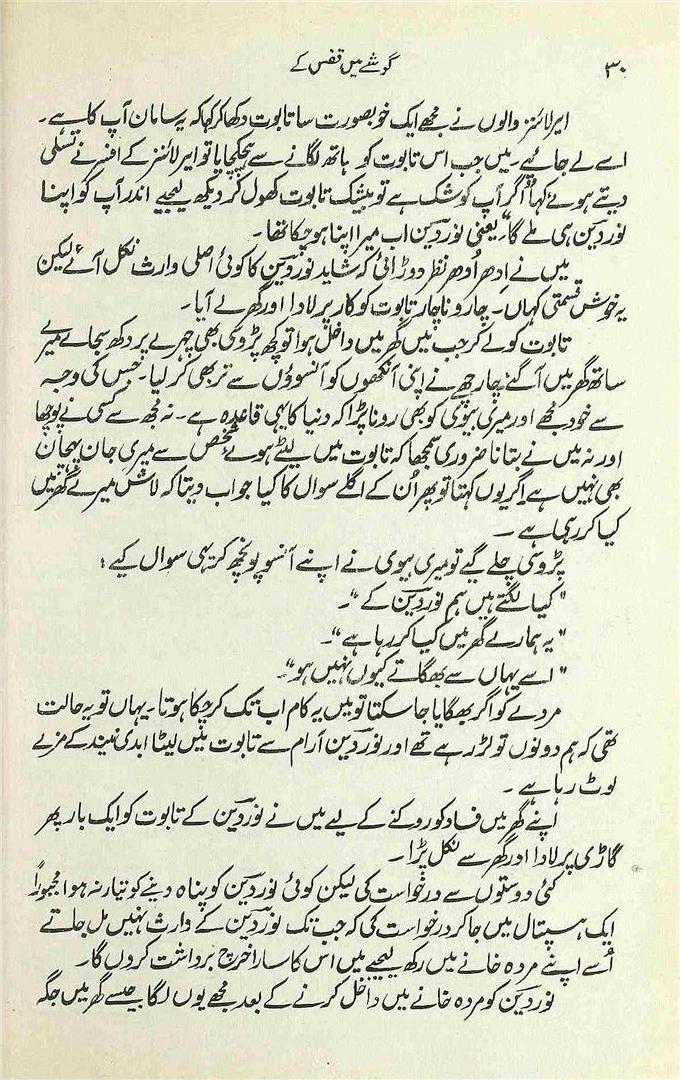 ۳۰
گوشے میں قفس کے
ایر لائنز والوں نے مجھے ایک خوبصورت سا تابوت دکھا کر کہا کہ یہ سامان آپ کا ہے۔
اسے لے جائیے۔ میں جب اس تابوت کو ہاتھ لگانے سے ہچکچایا تو ایر لائنز کے افسر نے تسلی
دیتے ہوئے کہا "اگر آپ کو شک ہے تو بیشک تابوت کھول کر دیکھ لیجیے اندر آپ کو اپنا
نوردین ہی ملے گا"۔ یعنی نوردین اب میرا اپنا ہو چکا تھا۔
میں نے ادھر اُدھر نظر دوڑائی کہ شاید نوردین کا کوئی اصلی وارث نکل آئے لیکن
یہ خوش قسمتی کہاں۔ چار و ناچار تابوت کو کار پر لادا اور گھر لے آیا۔
تابوت کو لے کر جب میں گھر میں داخل ہوا تو کچھ پڑوسی بھی چہرے پر دکھ سجائے میرے
ساتھ گھر میں آ گئے۔ چار چھے نے اپنی آنکھوں کو آنسوؤں سے تر بھی کر لیا۔ جس کی وجہ
سے خود مجھے اور میری بیوی کو بھی رونا پڑا کہ دنیا کا یہی قاعدہ ہے۔ نہ مجھ سے کسی نے پوچھا
اور نہ میں نے بتانا ضروری سمجھا کہ تابوت میں لیٹے ہوئے شخص سے میری جان پہچان
بھی نہیں ہے۔ اگر یوں کہتا تو پھر اُن کے اگلے سوال کا کیا جواب دیتا کہ لاش میرے گھر میں
کیا کر رہی ہے۔
پڑوسی چلے گیے تو میری بیوی نے اپنے آنسو پونچھ کر یہی سوال کیے :
"کیا لگتے ہیں ہم نوردین کے"۔
"یہ ہمارے گھر میں کیا کر رہا ہے"۔
"اسے یہاں سے بھگاتے کیوں نہیں ہو"۔
مردے کو اگر بھگایا جا سکتا تو میں یہ کام اب تک کر چکا ہوتا۔ یہاں تو یہ حالت
تھی کہ ہم دونوں تو لڑ رہے تھے اور نوردین آرام سے تابوت میں لیٹا ابدی نیند کے مزے
لوٹ رہا ہے۔
اپنے گھر میں فساد کو روکنے کے لیے میں نے نوردین کے تابوت کو ایک بار پھر
گاڑی پر لادا اور گھر سے نکل پڑا۔
کئی دوستوں سے درخواست کی لیکن کوئی نوردین کو پناہ دینے کو تیار نہ ہوا مجبوراً
ایک ہسپتال میں جا کر درخواست کی کہ جب تک نوردین کے وارث نہیں مل جاتے
اُسے اپنے مردہ خانے میں رکھ لیجیے میں اس کا سارا خرچ برداشت کروں گا۔
نوردین کو مردہ خانے میں داخل کرنے کے بعد مجھے یوں لگا جیسے گھر میں جگہ